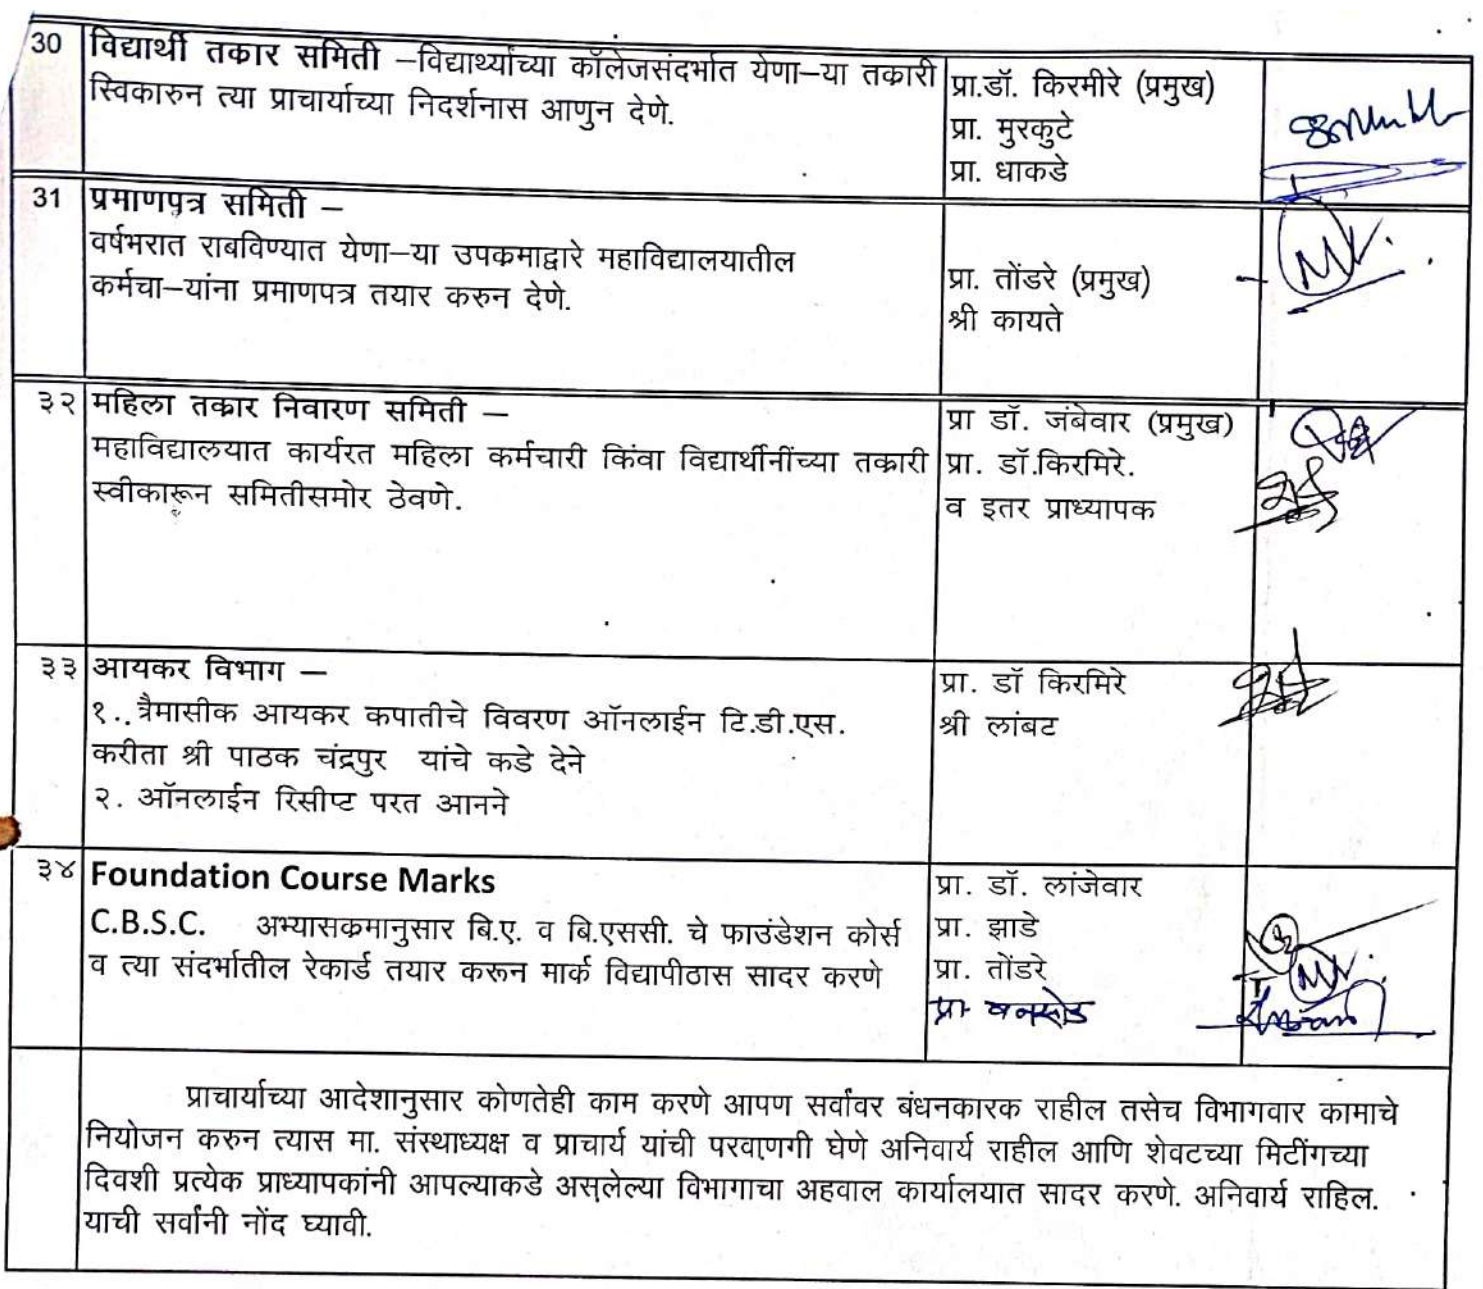 30
विद्यार्थी तकार समिती –विद्यार्थ्यांच्या कॉलेजसंदर्भात येणा–या तकारी
स्विकारुन त्या प्राचार्याच्या निदर्शनास आणुन देणे.
प्रा.डॉ. किरमीरे (प्रमुख)
प्रा. मुरकुटे
प्रा. धाकडे
31
प्रमाणपत्र समिती –
वर्षभरात राबविण्यात येणा–या उपकमाद्वारे महाविद्यालयातील
कर्मचा–यांना प्रमाणपत्र तयार करुन देणे.
प्रा. तोंडरे (प्रमुख)
श्री कायते
३२
महिला तकार निवारण समिती –
महाविद्यालयात कार्यरत महिला कर्मचारी किंवा विद्यार्थीनींच्या तकारी
स्वीकारून समितीसमोर ठेवणे.
प्रा डॉ. जंबेवार (प्रमुख)
प्रा. डॉ.किरमिरे.
व इतर प्राध्यापक
३३
आयकर विभाग –
१. त्रैमासीक आयकर कपातीचे विवरण ऑनलाईन टि.डी.एस.
करीता श्री पाठक चंद्रपुर यांचे कडे देने
२. ऑनलाईन रिसीप्ट परत आनने
प्रा. डॉ किरमिरे
श्री लांबट
३४
Foundation Course Marks
C.B.S.C. अभ्यासकमानुसार बि.ए. व बि.एससी. चे फाउंडेशन कोर्स
व त्या संदर्भातील रेकार्ड तयार करून मार्क विद्यापीठास सादर करणे
प्रा. डॉ. लांजेवार
प्रा. झाडे
प्रा. तोंडरे
प्रा वनसोड
प्राचार्याच्या आदेशानुसार कोणतेही काम करणे आपण सर्वांवर बंधनकारक राहील तसेच विभागवार कामाचे
नियोजन करुन त्यास मा. संस्थाध्यक्ष व प्राचार्य यांची परवाणगी घेणे अनिवार्य राहील आणि शेवटच्या मिटींगच्या
दिवशी प्रत्येक प्राध्यापकांनी आपल्याकडे असलेल्या विभागाचा अहवाल कार्यालयात सादर करणे. अनिवार्य राहिल.
याची सर्वांनी नोंद घ्यावी.